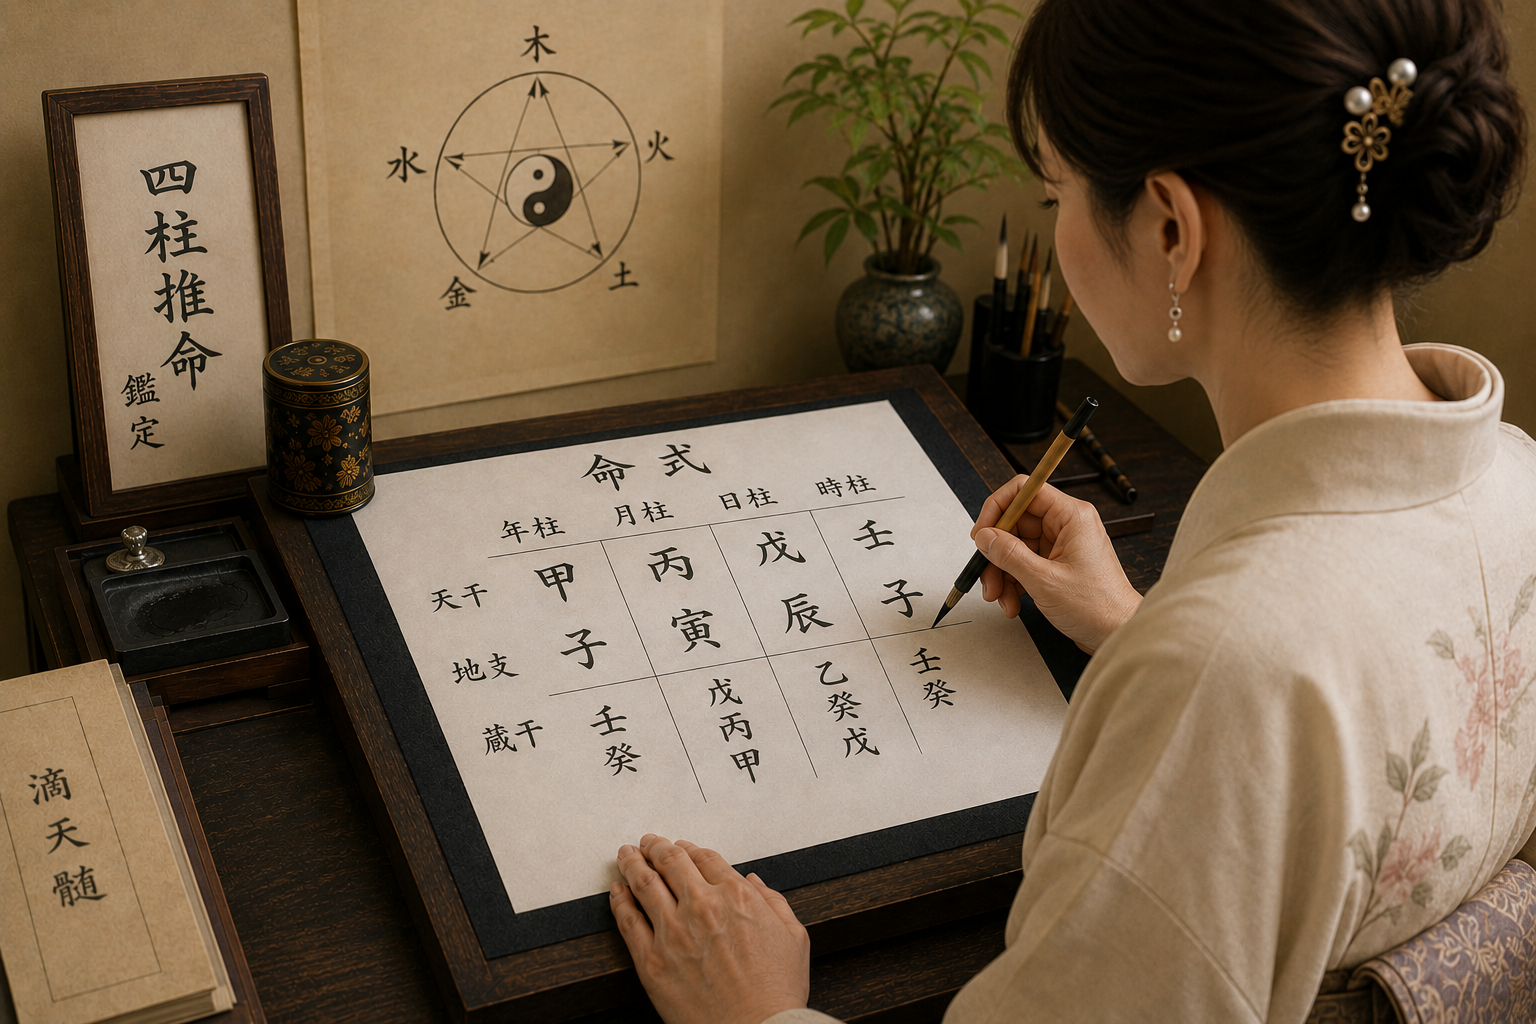 四柱推命
鑑定
木
火
土
金
水
命式
年柱 月柱 日柱 時柱
天干 甲 丙 戊 壬
地支 子 寅 辰 子
蔵干 壬癸 戊丙甲 乙癸戊 壬癸
滴天髄